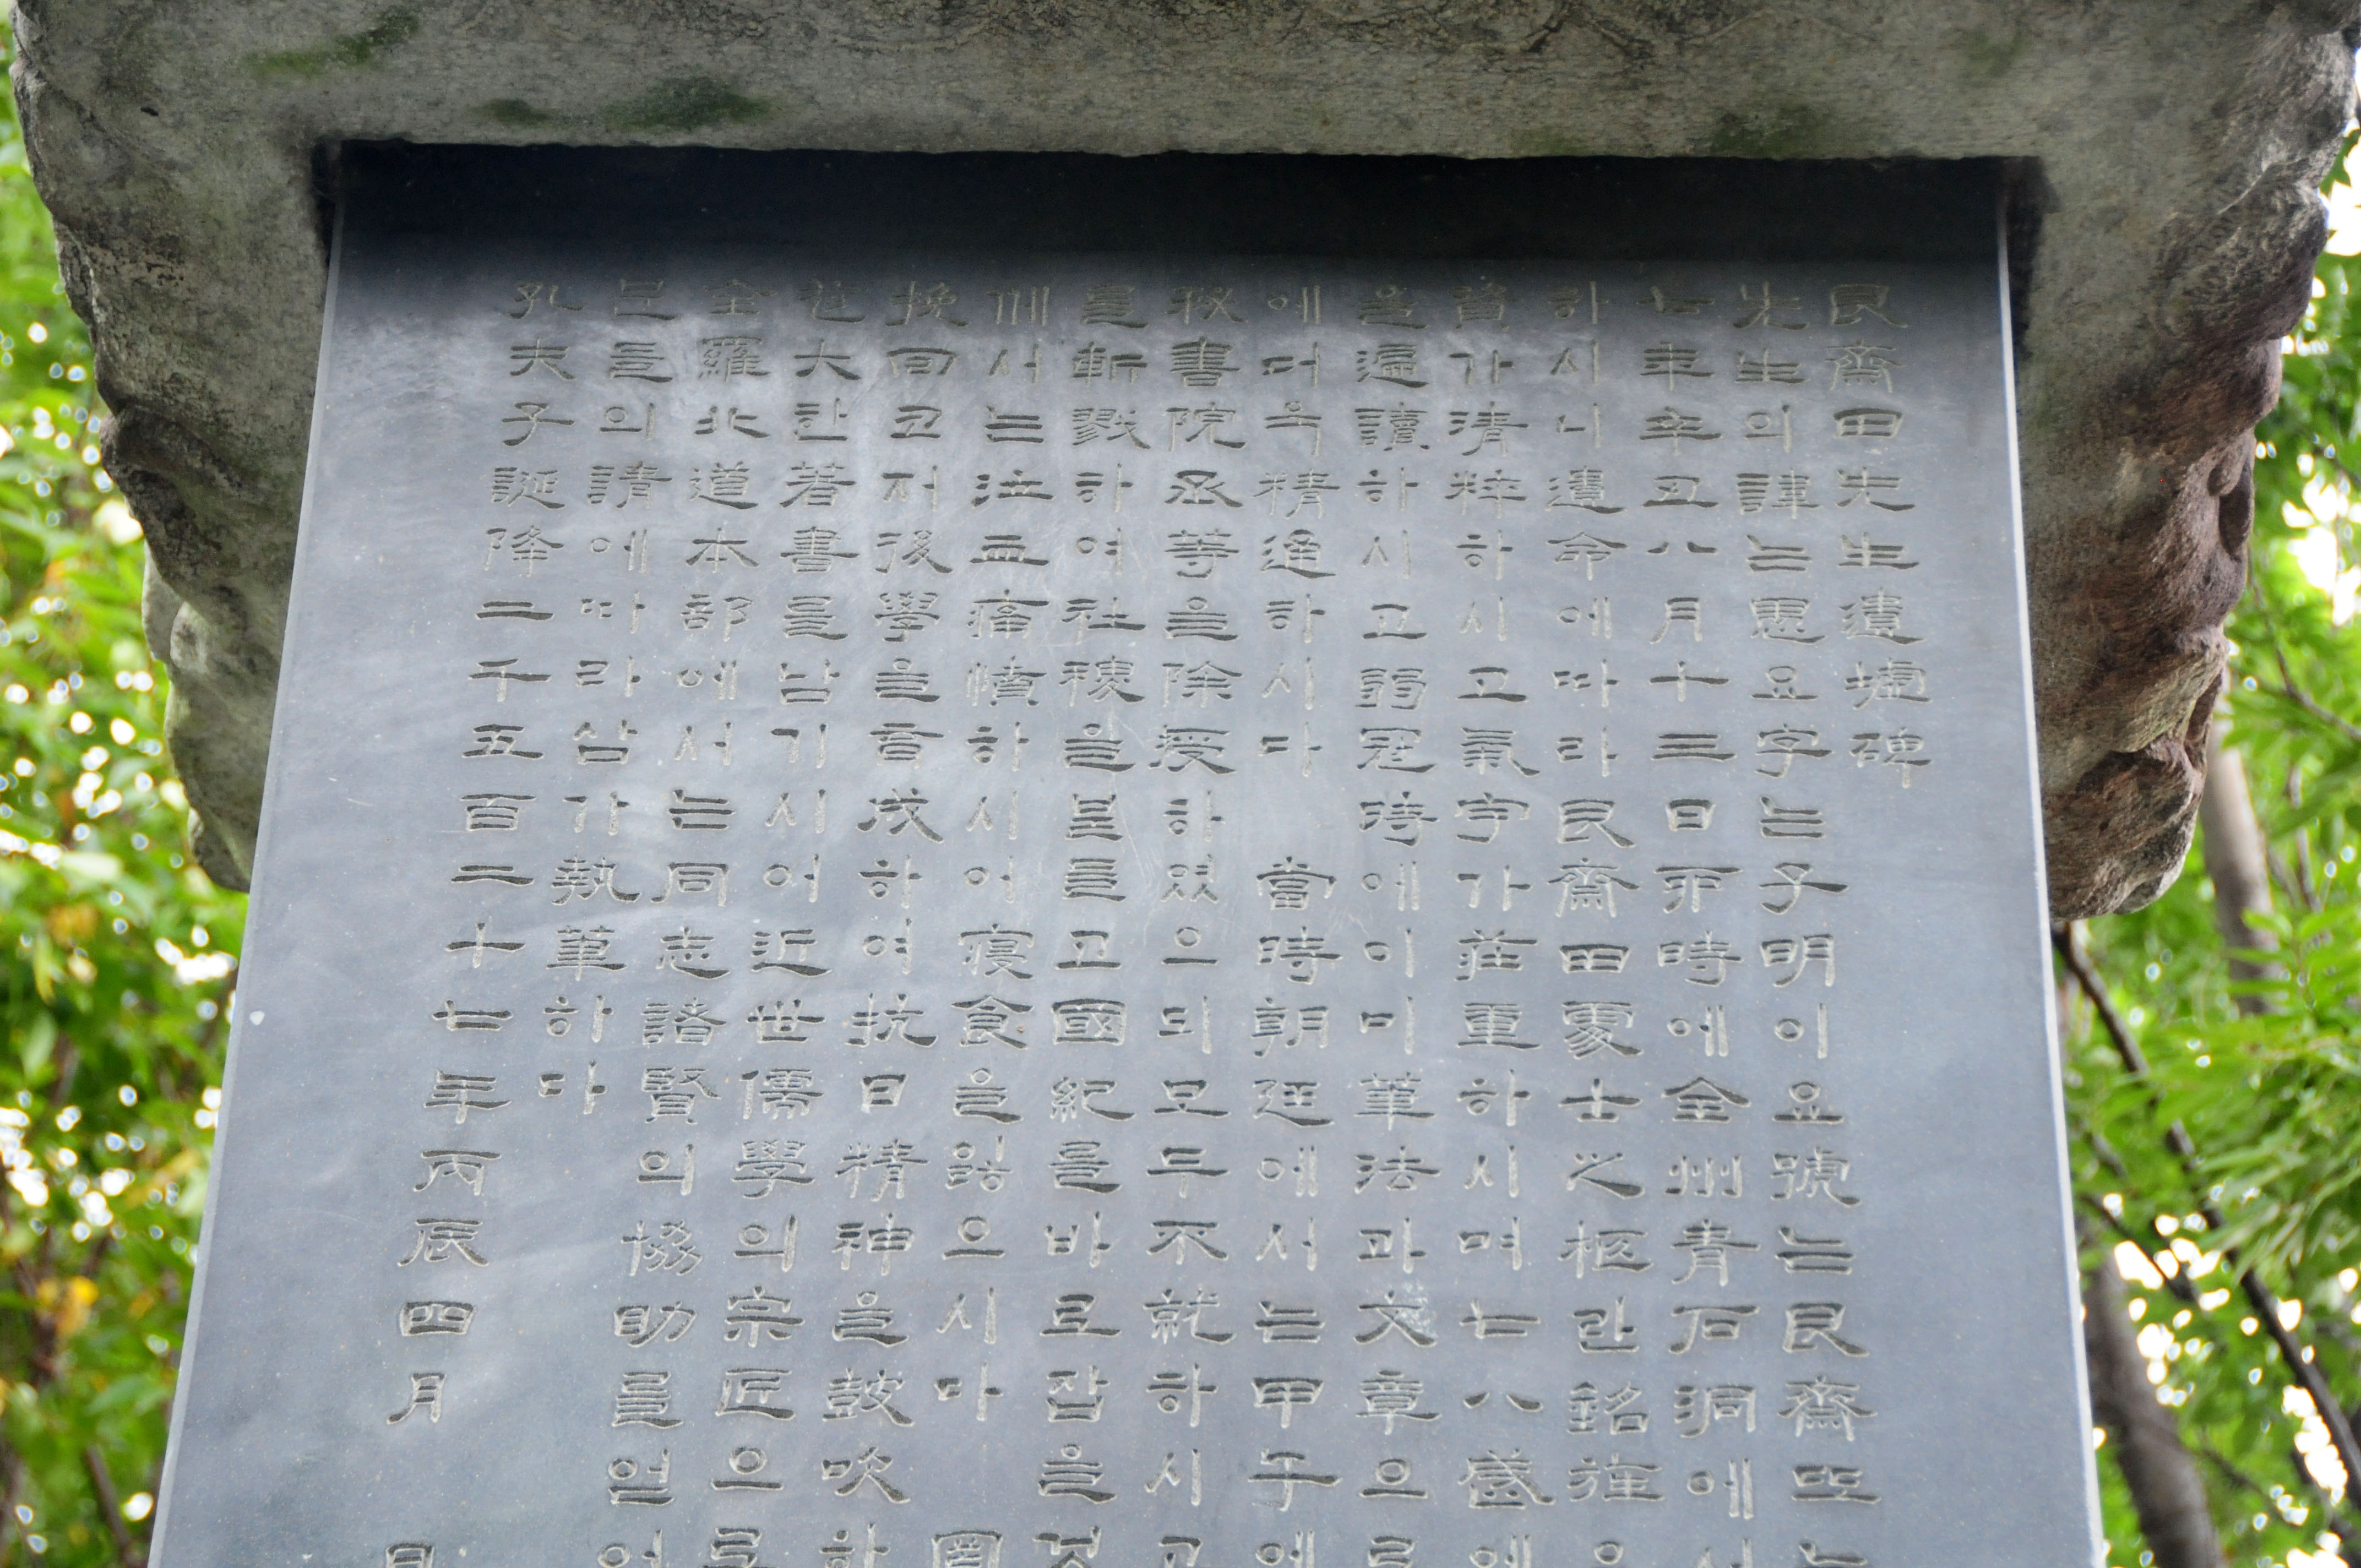 艮齋田先生遺墟碑
先生의諱는愚요字는子明이요號는艮齋또는
七年辛丑八月十三日丣時에全州青石洞에서
하시니遺命에따라艮齋田處士之柩란銘旌으
資가清粹하시고氣宇가莊重하시며七八歲에
을遍讀하시고弱冠時에이미筆法과文章으로
에더욱精通하시다 當時朝廷에서는甲午에
秘書院丞等을除授하였으되모두不就하시고
를斬戮하여社稷을보를고國紀를바로잡을것
케서는泣血痛憤하시어寢食을잃으시마 國
挽回코저後學을育成하여抗日精神을鼓吹하
大한著書를남기시어近世儒學의宗匠으로
全羅北道本部에서는同志諸賢의協助를얻어
들의請에따라삼가執筆하다
孔夫子誕降二千五百二十七年丙辰四月 日